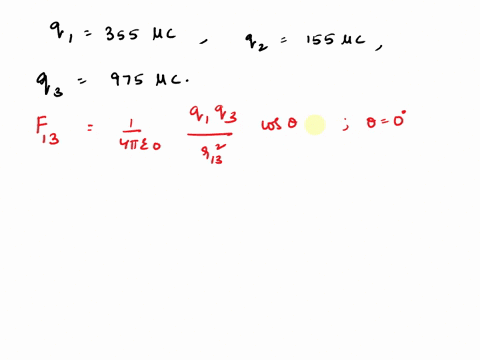 q₁ = 355 μC , q₂ = 155 μC ,
q₃ = 975 μC .
F₁₃ = 1/4πε0 q₁q₃/r₁₃² cos θ ; θ = 0°